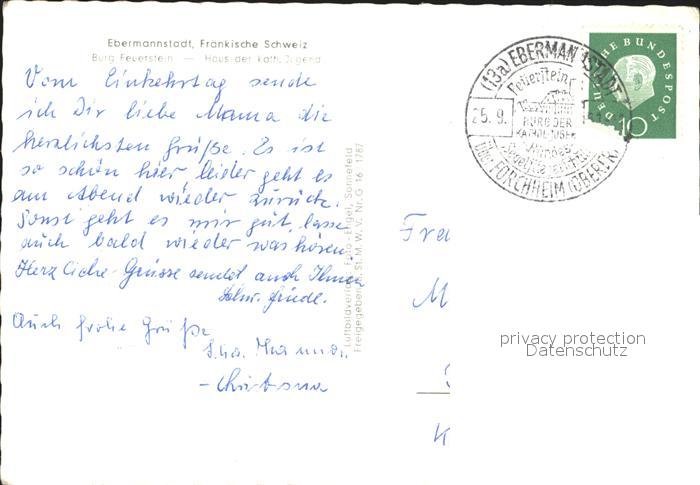 Ebermannstadt, Fränkische Schweiz
Burg Feuerstein — Haus der kath. Jugend
Vom Einkehrtag sende
ich Dir liebe Mama die
herzlichsten Grüße. Es ist
so schön hier leider geht es
am Abend wieder zurück.
Sonst geht es mir gut, lasse
auch bald wieder was hören.
Herzliche Grüsse sendet auch Ihnen
Schw. Friedl.
Auch frohe Grüße
Christana
Luftbildverlag Foto-Engel, Sonnefeld
Freigegeben d. St. M. W. V. Nr. G 16 1787
(13a) EBERMANNSTADT
Feuerstein
BURG DER
25.9.
über FORCHHEIM (OBERFR.)
DEUTSCHE BUNDESPOST
10
Fra
M
K
privacy protection
Datenschutz